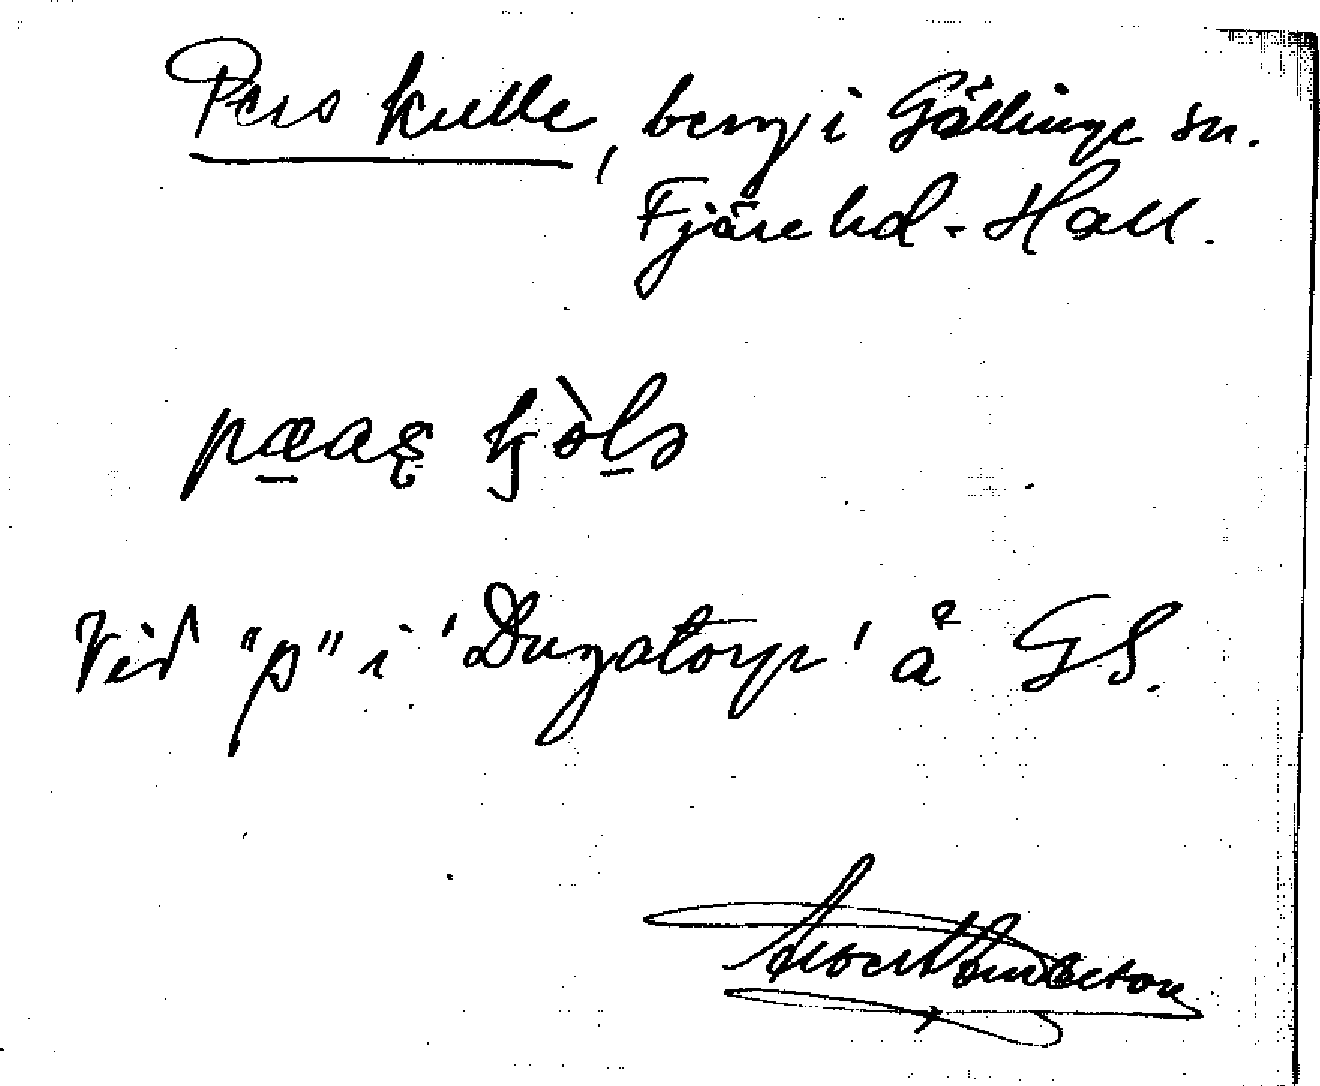 Pers kulle, berg i Gällinge sn.
Fjäre hd - Hall.
Vid "p" i 'Dugatorp' å GS.